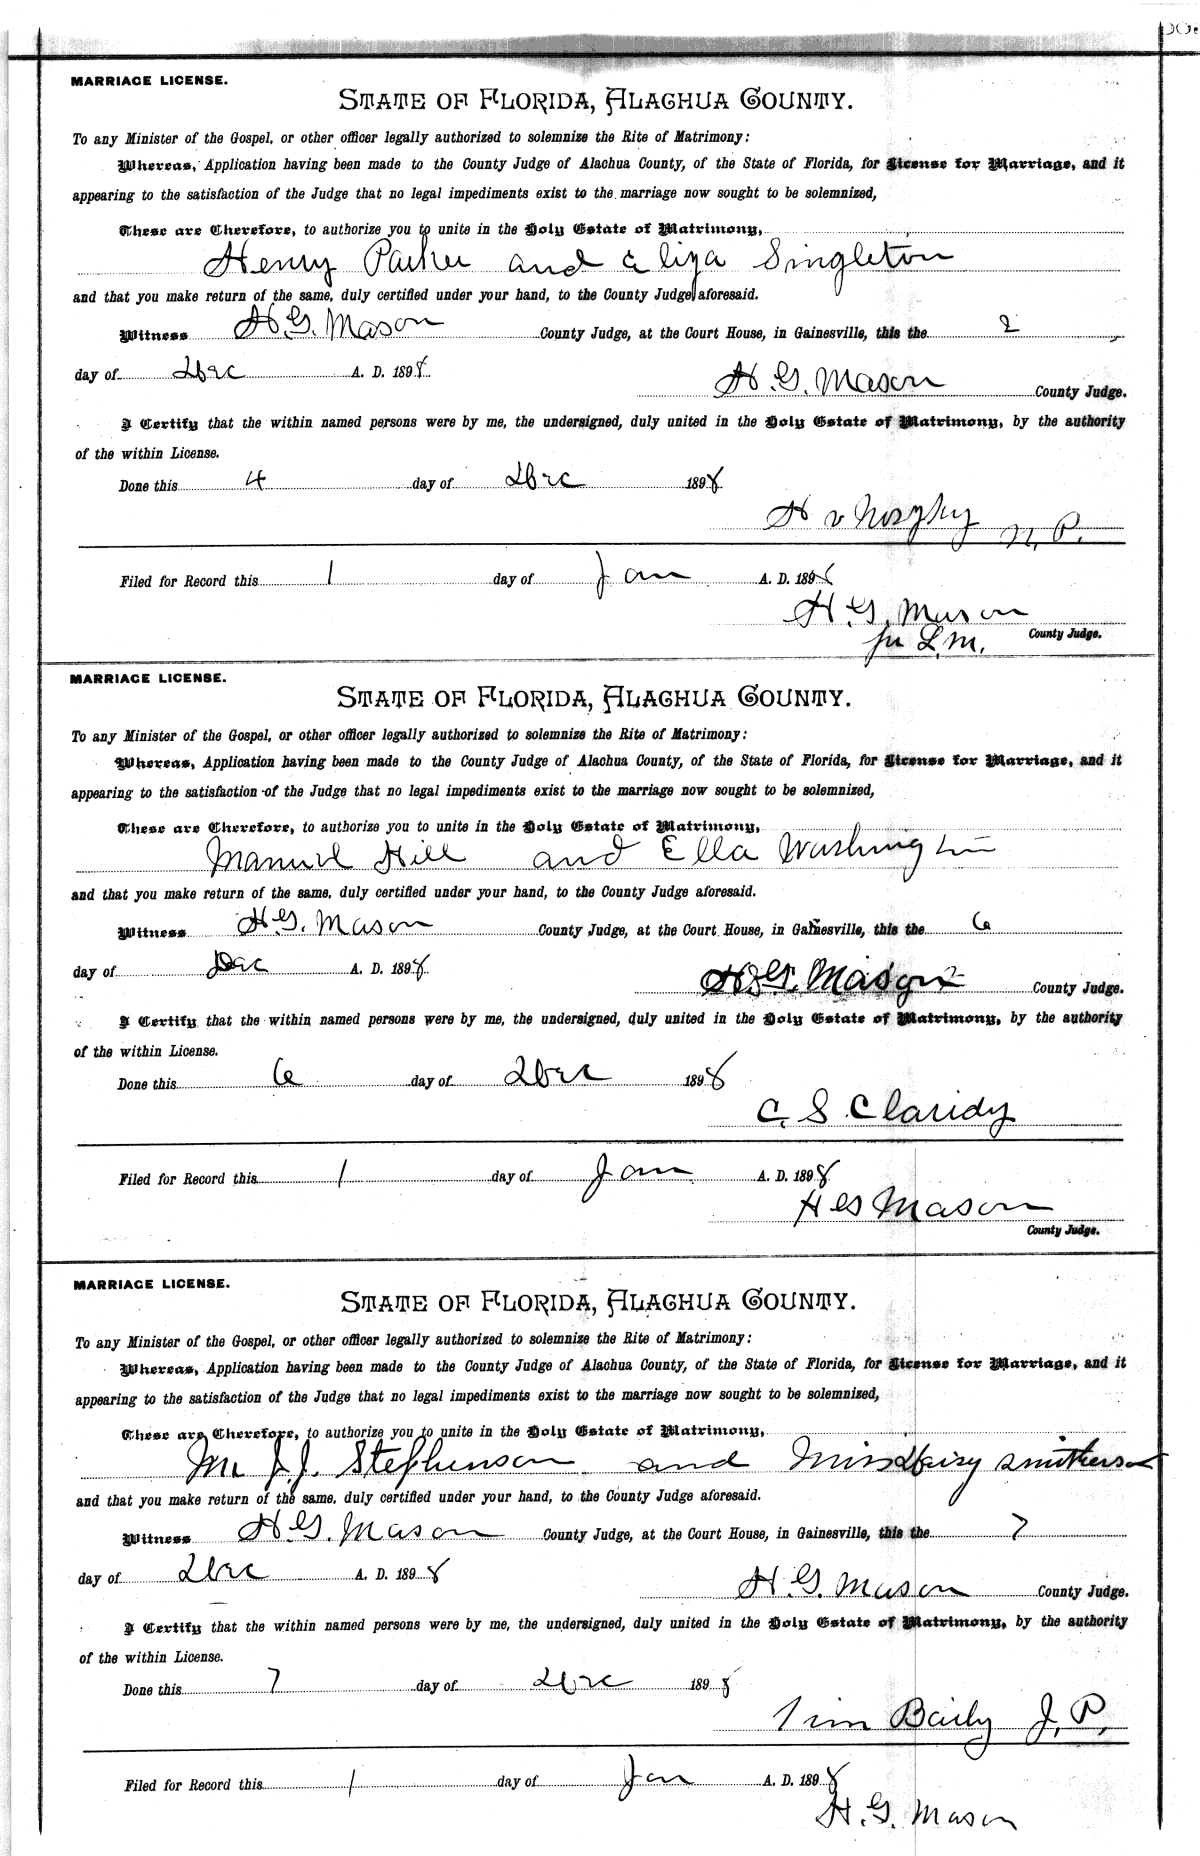 MARRIAGE LICENSE.
STATE OF FLORIDA, ALACHUA COUNTY.
To any Minister of the Gospel, or other officer legally authorized to solemnize the Rite of Matrimony:
Whereas, Application having been made to the County Judge of Alachua County, of the State of Florida, for License for Marriage, and it
appearing to the satisfaction of the Judge that no legal impediments exist to the marriage now sought to be solemnized,
These are Therefore, to authorize you to unite in the Holy Estate of Matrimony,
Henry Parker and Eliza Singleton
and that you make return of the same, duly certified under your hand, to the County Judge aforesaid.
Witness H. G. Mason County Judge, at the Court House, in Gainesville, this the 2
day of Dec A. D. 1898
H. G. Mason County Judge.
I Certify that the within named persons were by me, the undersigned, duly united in the Holy Estate of Matrimony, by the authority
of the within License.
Done this 4 day of Dec 1898
H N. P.
Filed for Record this 1 day of Jan A. D. 1898
H. G. Mason
County Judge.
pr L. M.
MARRIAGE LICENSE.
STATE OF FLORIDA, ALACHUA COUNTY.
To any Minister of the Gospel, or other officer legally authorized to solemnize the Rite of Matrimony:
Whereas, Application having been made to the County Judge of Alachua County, of the State of Florida, for License for Marriage, and it
appearing to the satisfaction of the Judge that no legal impediments exist to the marriage now sought to be solemnized,
These are Therefore, to authorize you to unite in the Holy Estate of Matrimony,
Manuel Hill and Ella Washington
and that you make return of the same, duly certified under your hand, to the County Judge aforesaid.
Witness H. G. Mason County Judge, at the Court House, in Gainesville, this the 6
day of Dec A. D. 1898
H. G. Mason County Judge.
I Certify that the within named persons were by me, the undersigned, duly united in the Holy Estate of Matrimony, by the authority
of the within License.
Done this 6 day of Dec 1898
C. S. Claridy
Filed for Record this 1 day of Jan A. D. 1898
H G Mason
County Judge.
MARRIAGE LICENSE.
STATE OF FLORIDA, ALACHUA COUNTY.
To any Minister of the Gospel, or other officer legally authorized to solemnize the Rite of Matrimony:
Whereas, Application having been made to the County Judge of Alachua County, of the State of Florida, for License for Marriage, and it
appearing to the satisfaction of the Judge that no legal impediments exist to the marriage now sought to be solemnized,
These are Therefore, to authorize you to unite in the Holy Estate of Matrimony,
Mr J. J. Stephenson and Miss Daisy Smitherson
and that you make return of the same, duly certified under your hand, to the County Judge aforesaid.
Witness H. G. Mason County Judge, at the Court House, in Gainesville, this the 7
day of Dec A. D. 1898
H. G. Mason County Judge.
I Certify that the within named persons were by me, the undersigned, duly united in the Holy Estate of Matrimony, by the authority
of the within License.
Done this 7 day of Dec 1898
Tim Baily J. P.
Filed for Record this 1 day of Jan A. D. 1898
H. G. Mason